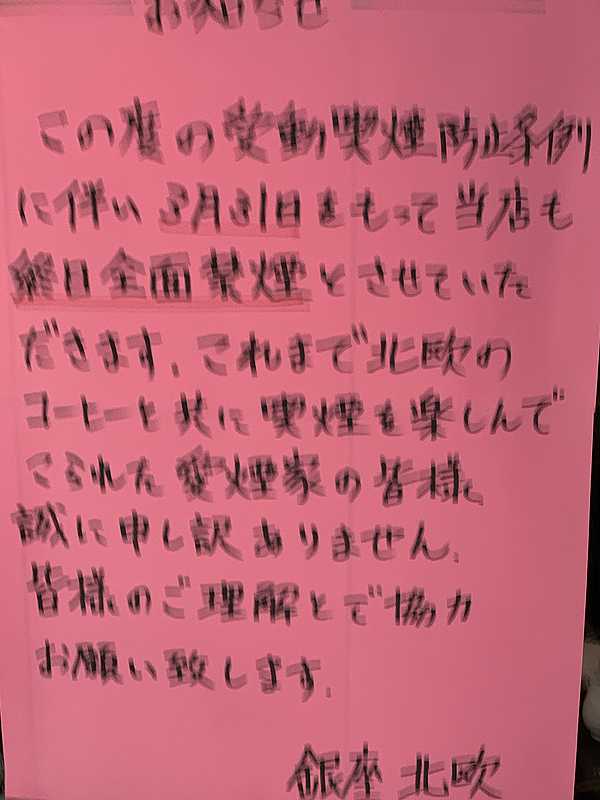 お知らせ
この度の受動喫煙防止条例
に伴い3月31日をもって当店も
終日全面禁煙とさせていた
だきます。これまで北欧の
コーヒーと共に喫煙を楽しんで
こられた愛煙家の皆様
誠に申し訳ありません。
皆様のご理解とご協力
お願い致します。
銀座 北欧